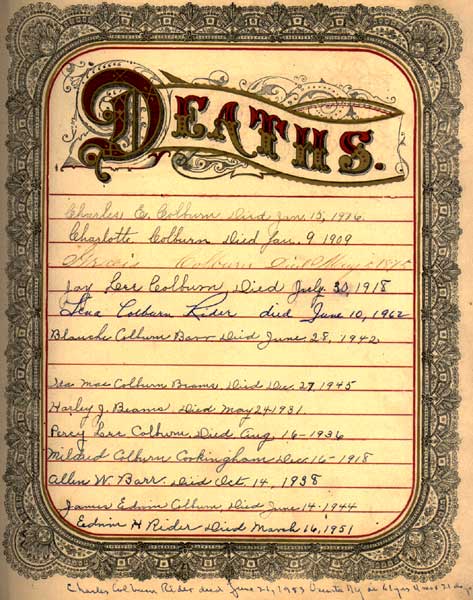 DEATHS.
Charles E. Colburn Died Jan. 15, 1926.
Charlotte Colburn Died Jan. 9 1909
Colburn Died May
Jay Lee Colburn, Died July 30, 1918
Lena Colburn Rider died June 10, 1962
Blanche Colburn Barr Died June 28, 1942
Iea Mae Colburn Beams Died Dec. 27, 1945
Harley J. Beams Died May 24 1931.
Percy Lee Colburn, Died Aug. 16-1936
Mildred Colburn Cookingham Dec. 16-1918
Allen W Barr Died Oct. 14, 1938
James Edwin Colburn, Died June 14-1944
Edwin H Rider Died March 16, 1951
Charles Colburn Rider died June 21, 1983